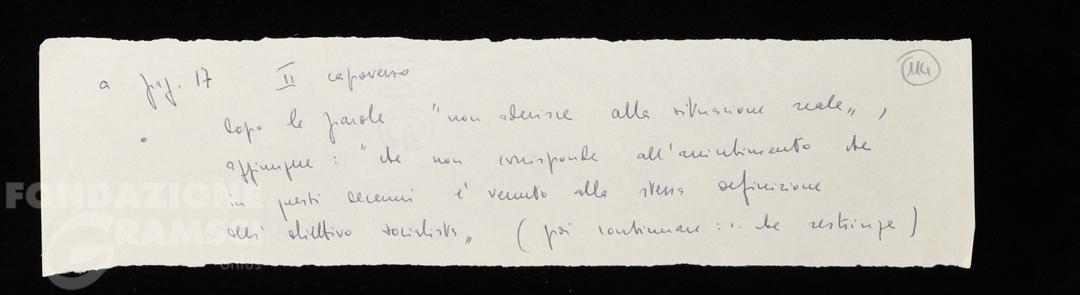 a pag. 17 II capoverso
114
dopo le parole "non aderisce alla situazione reale",
aggiungere: "che non corrisponde all'arricchimento che
in questi decenni è venuto alla stessa definizione
dell'obiettivo socialista" (poi continuare: .. che restringe)
FONDAZIONE
GRAMSCI
onlus